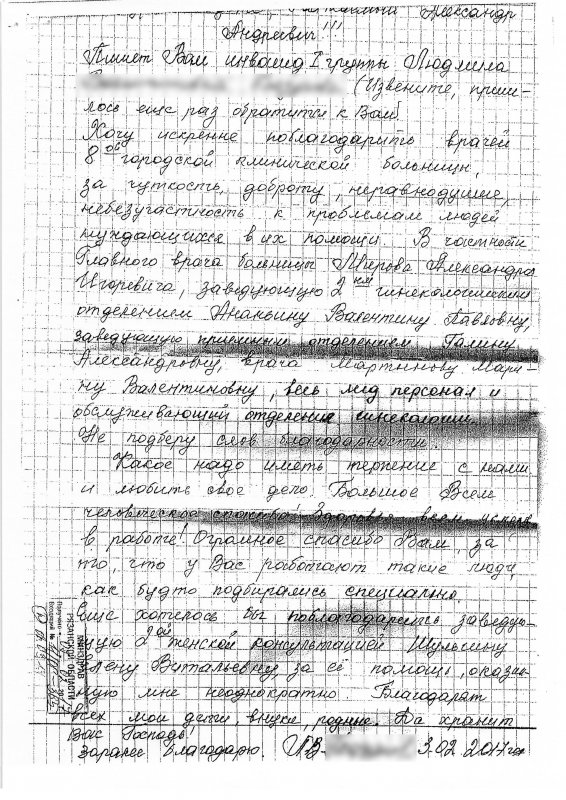 Александр
Андреевич!!!
Пишет Вам инвалид I группы Людмила
(Извените, приш-
лось еще раз обратится к Вам)
Хочу искренне поблагодарить врачей
8ой городской клинической больницы,
за чуткость, доброту, неравнодушие,
небезучастность к проблемам людей
нуждающихся в их помощи. В частности
Главного врача больницы Александра
Игоревича, заведующую 2ым гинекологическим
отделением Ананьину Валентину Павловну,
заведующую приемным отделением Галину
Александровну, врача Мартынову Мари-
ну Валентиновну, весь мед персонал и
обслуживающий отделения гинекологии.
Не подберу слов благодарности.
Какое надо иметь терпение с нами
и любить свое дело. Большое Всем
человеческое спасибо! Здоровья всем
в работе! Огромное спасибо Вам, за
то, что у Вас работают такие люди,
как будто подбирались специально.
Еще хотелось бы поблагодарить заведую-
щую 2ой женской консультацией Шульгину
Елену Витальевну, за её помощь, оказан-
ную мне неоднократно Благодарят
всех мои дети внуки, родные. Да хранит
Вас Господь!
Заранее благодарю. 3.02 2017 год
МИНЗДРАВ
РЯЗАНСКОЙ ОБЛАСТИ